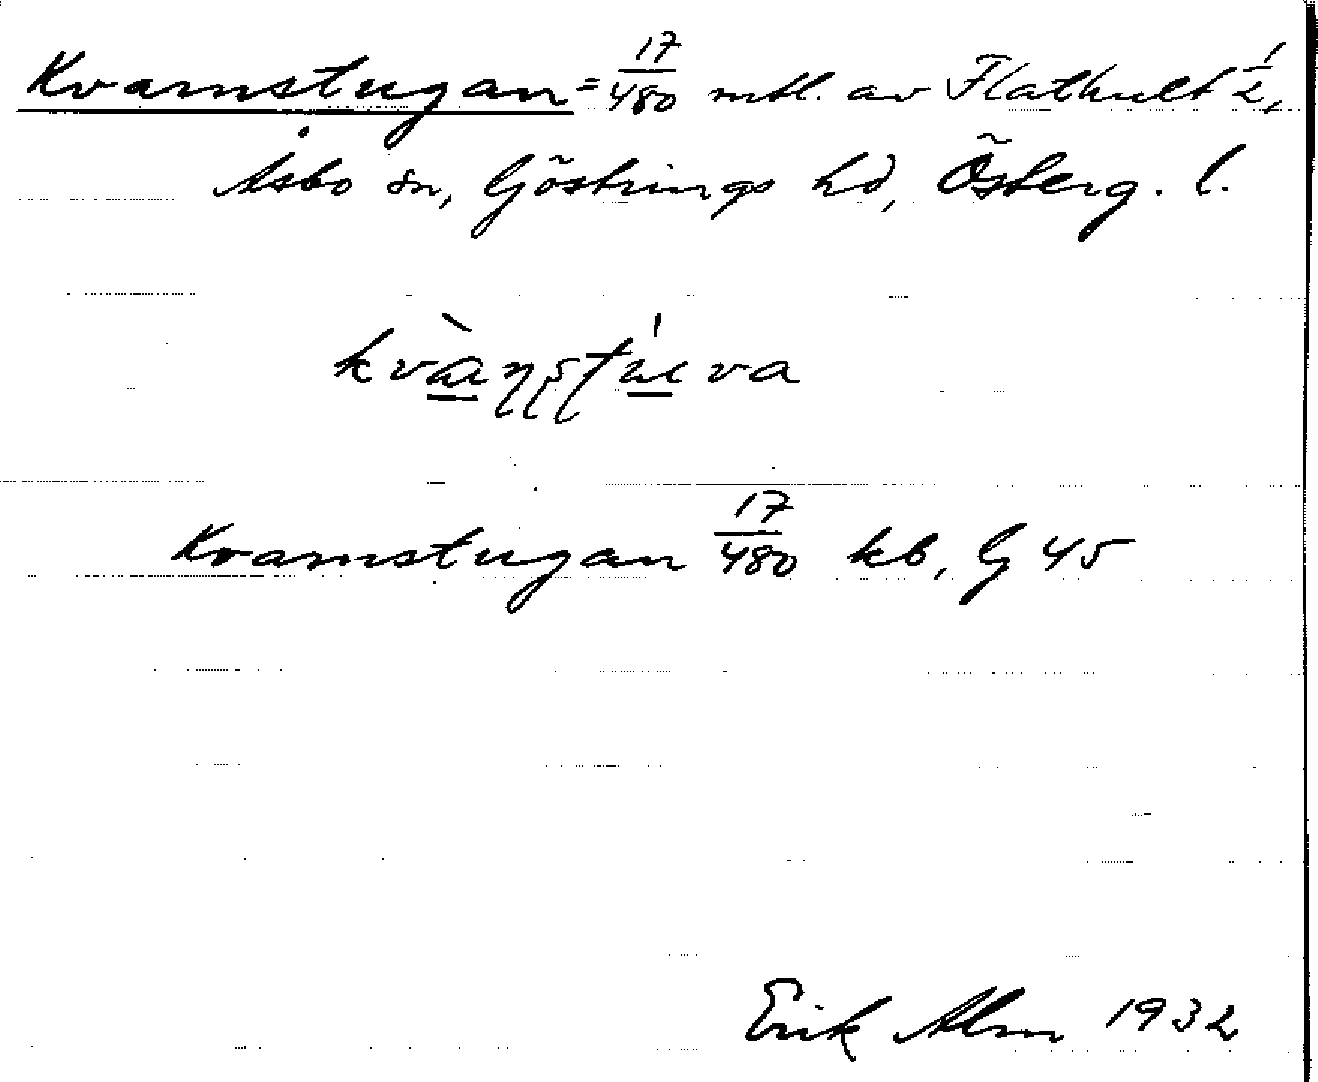 Kvarnstugan = 17/480 mtl. av Flathult 1/2,
Åsbo sn, Göstrings hd, Österg. l.
kvàṇṣṭúva
Kvarnstugan 17/480 kb, G 45
Erik Alm 1932